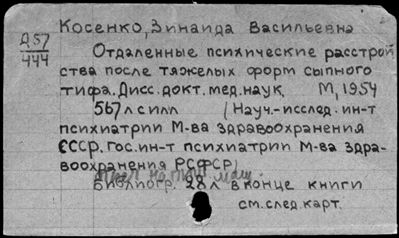 Косенко, Зинаида Васильевна
Д57
444
Отдаленные психические расстрой
ства после тяжелых форм сыпного
тифа. Дисс. докт. мед. наук. М, 1954
567 л с илл (Науч.-исслед. ин-т
психиатрии М-ва здравоохранения
СССР. Гос. ин-т психиатрии М-ва здра-
воохранения РСФСР)
маш.
Библиогр. 28 л в конце книги
см. след. карт.